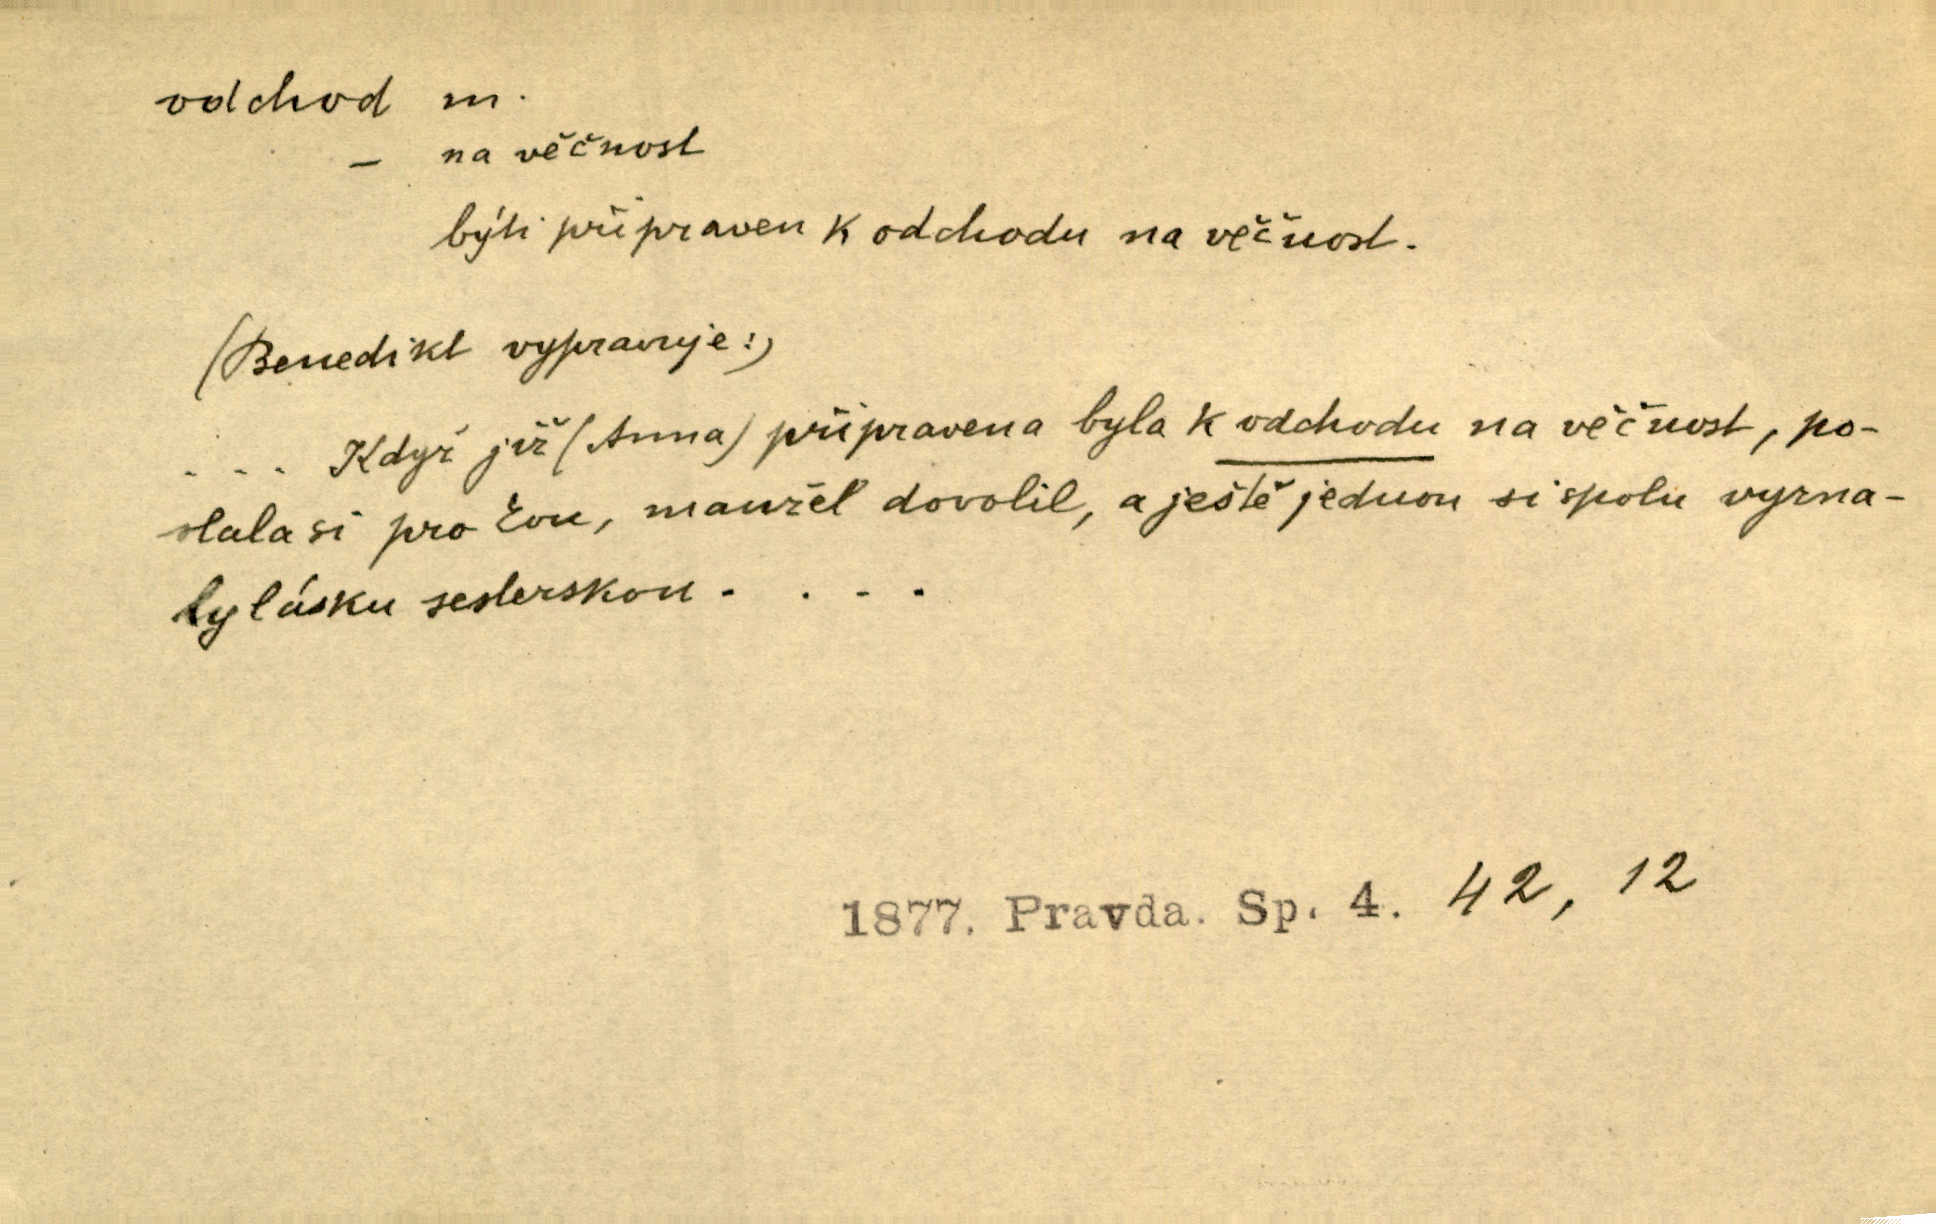 odchod m.
– na věčnost
býti připraven k odchodu na věčnost.
(Benedikt vypravuje:)
. . . Když již (Anna) připravena byla k odchodu na věčnost, po-
slala si pro Evu, manžel dovolil, a ještě jednou si spolu vyzna-
ly lásku sesterskou . . . .
1877. Pravda. Sp. 4. 42, 12